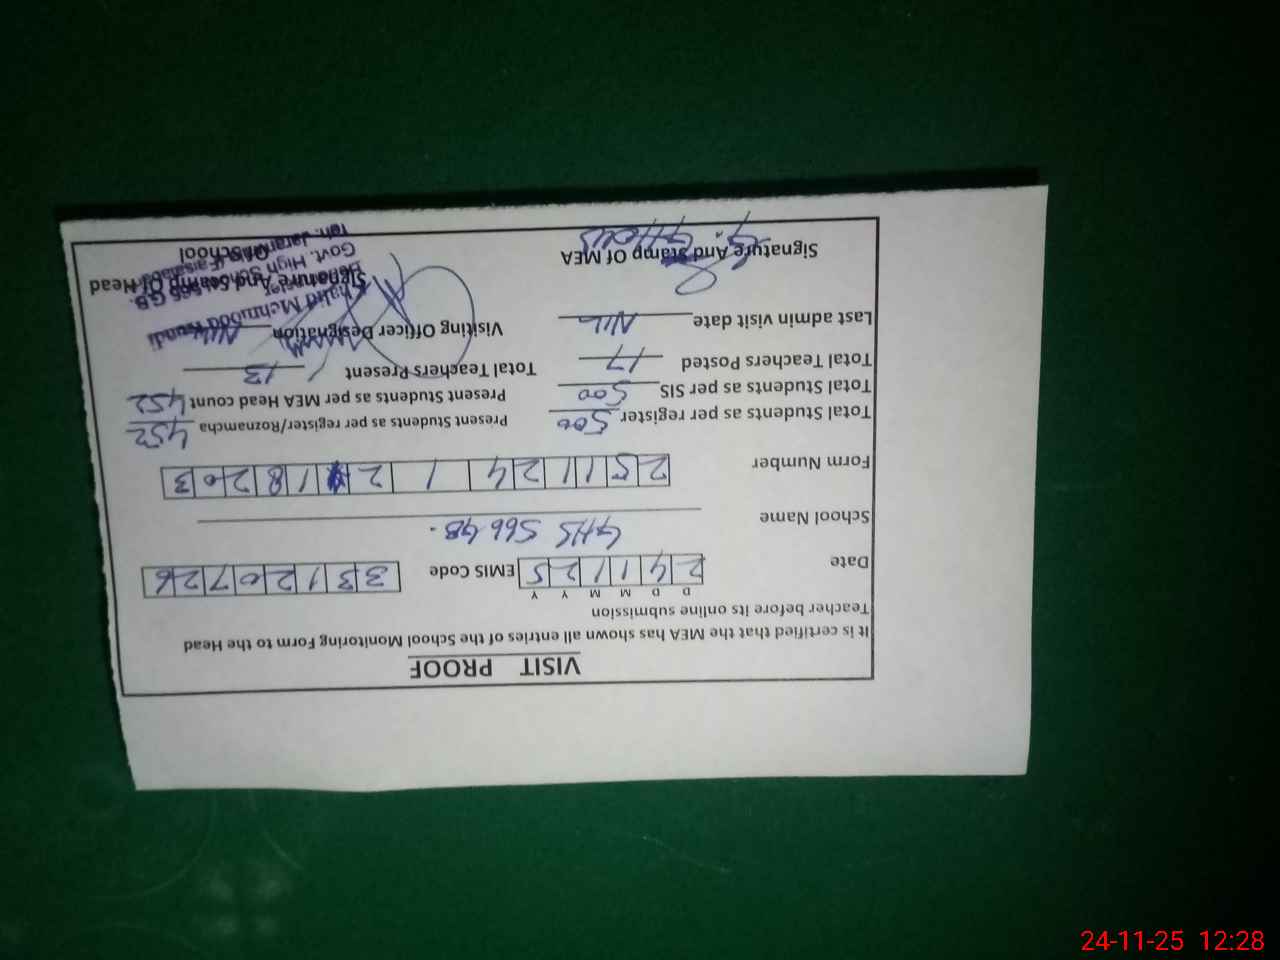 VISIT PROOF
It is certified that the MEA has shown all entries of the School Monitoring Form to the Head
Teacher before its online submission
D D M M Y Y
Date 2 4 1 1 2 5 EMIS Code 3 3 1 2 0 7 2 6
School Name GHS 566 GB.
Form Number 2 5 1 1 2 4 1 2 1 8 2 0 3
Total Students as per register 500 Present Students as per register/Roznamcha 452
Total Students as per SIS 500 Present Students as per MEA Head count 452
Total Teachers Posted 17 Total Teachers Present 13
Last admin visit date NIL Visiting Officer Designation NIL
Signature And Stamp Of MEA
Signature And Stamp Of Head
Of School
Govt. High School
24-11-25 12:28